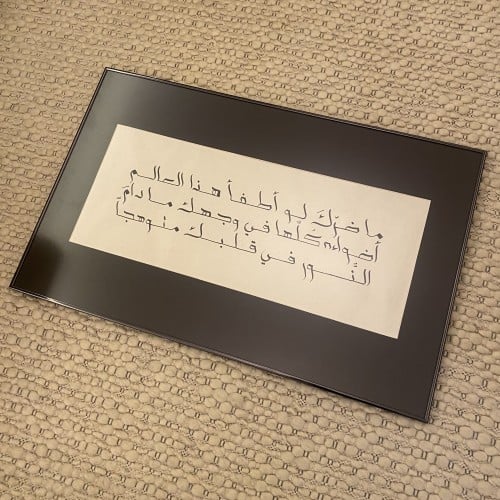 ما ضرّك لو أطفأ هذا العالم
أضواءه كلّها في وجهك ما دامَ
النُّور في قلبك متوهجاً